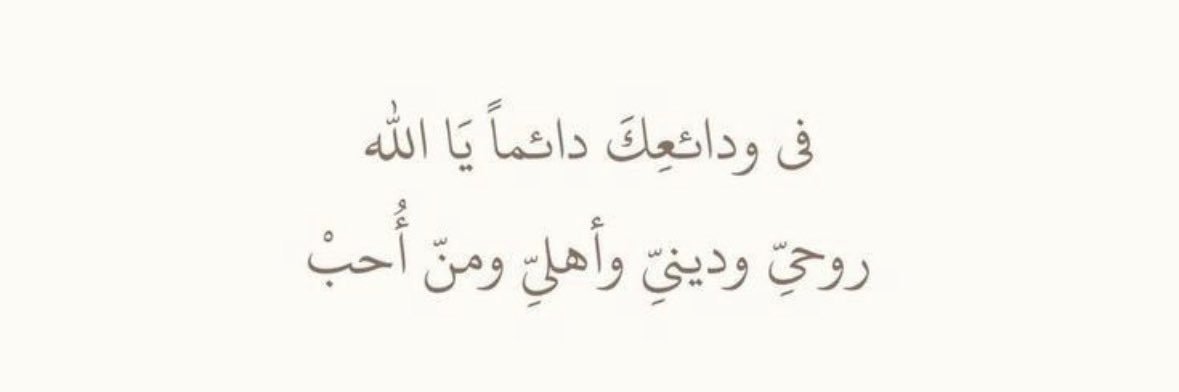 فى ودائعِكَ دائماً يَا الله
روحيِّ ودينيِّ وأهليِّ ومنّ أُحبْ